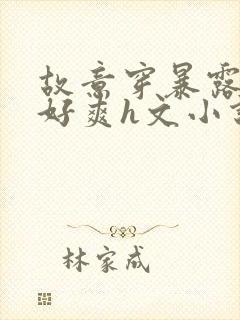 故意穿暴露
好爽h文小
林家成